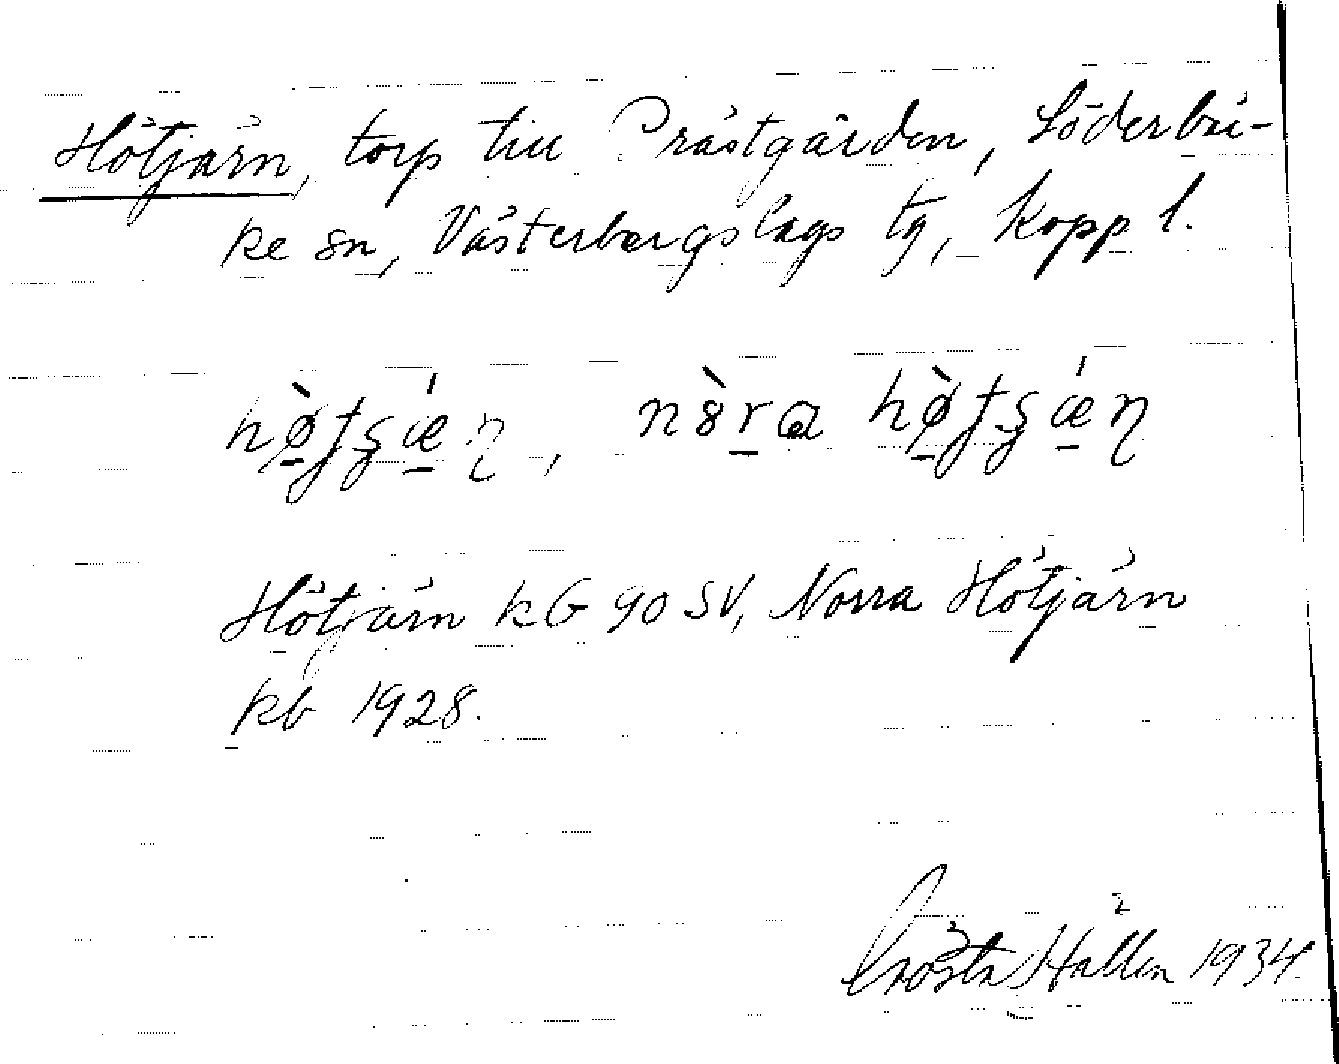 Hötjärn, torp till Prästgården, Söderbär-
ke sn, Västerbergslags tg, Kopp l.
hø̀ʈʂǽɳ, nòra hø̀ʈʂǽɳ
Hötjärn kb 90 SV, Norra Hötjärn
kb 1928.
Gösta Hallén 1934